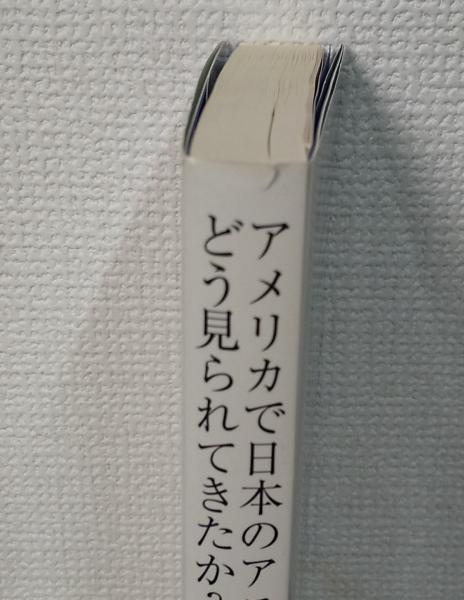 アメリカで日本のア
どう見られてきたか?